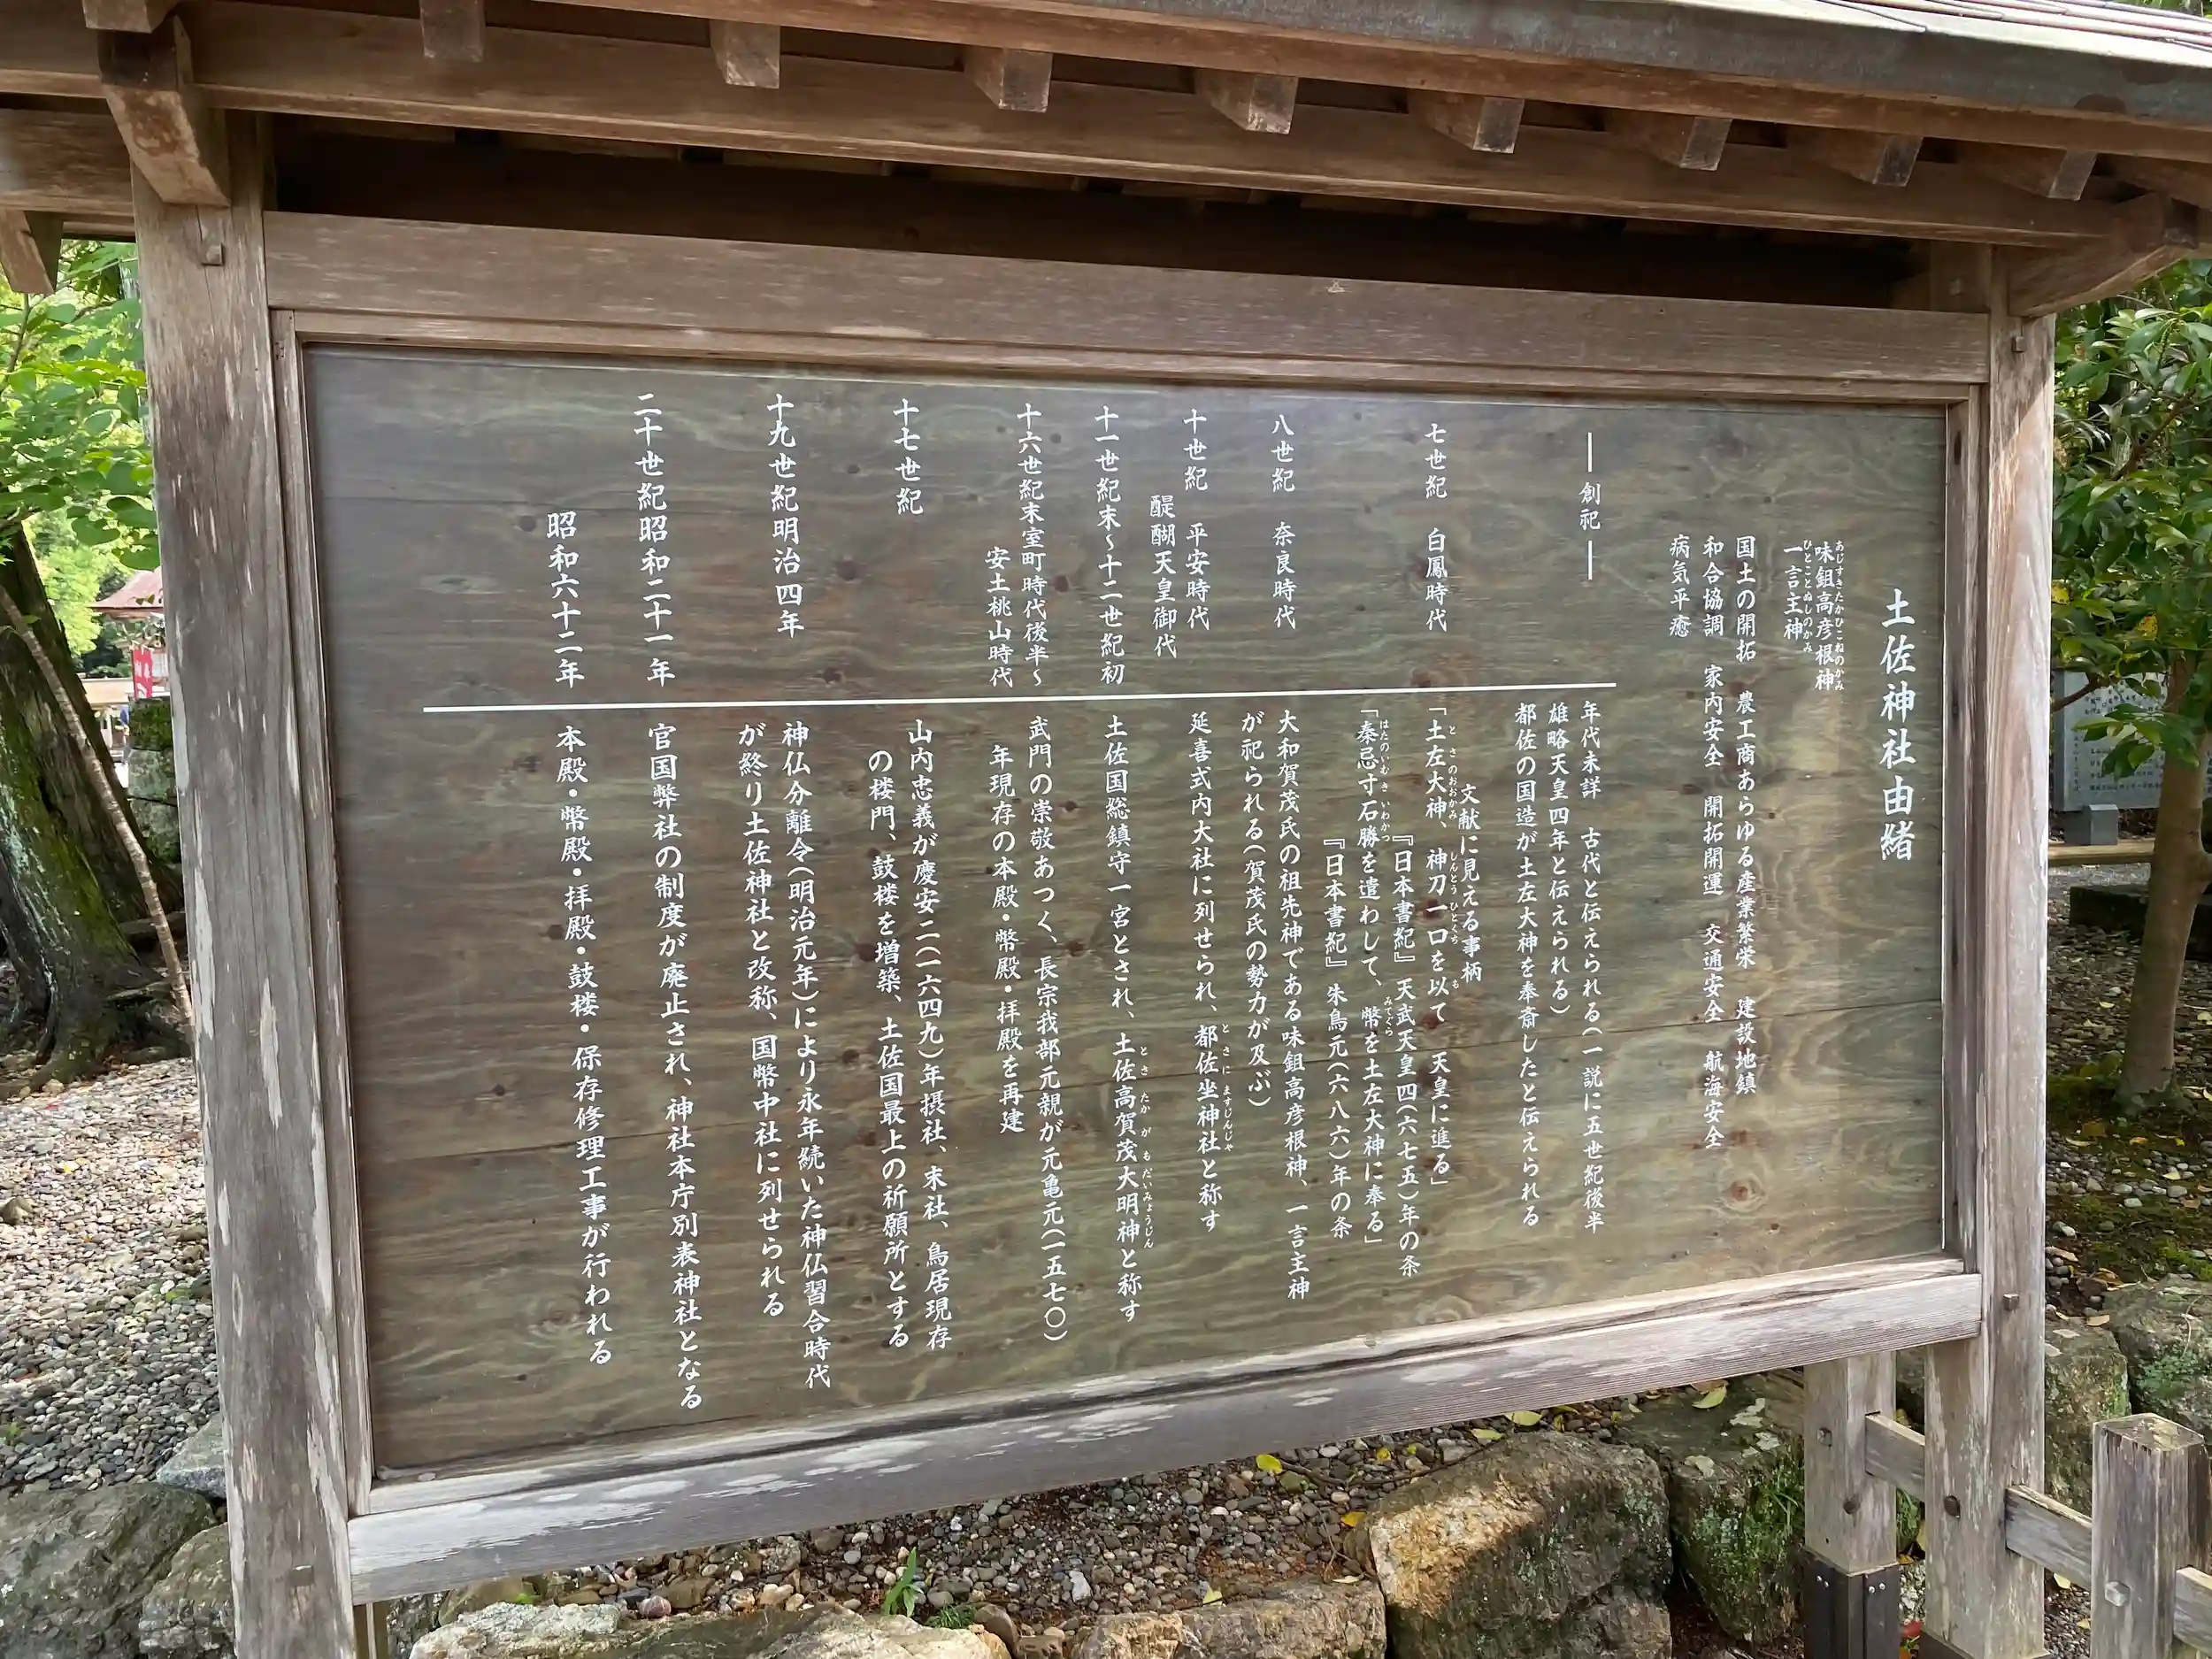 土佐神社由緒
味鉏高彦根神
あじすきたかひこねのかみ
一言主神
ひとことぬしのかみ
国土の開拓 農工商あらゆる産業繁栄 建設地鎮
和合協調 家内安全 開拓開運 交通安全 航海安全
病気平癒
―創祀―
年代未詳 古代と伝えられる(一説に五世紀後半
雄略天皇四年と伝えられる)
都佐の国造が土左大神を奉斎したと伝えられる
七世紀 白鳳時代
文献に見える事柄
「土左大神、神刀一口を以て 天皇に進る」
とさのおおかみ しんとうひとくち も
『日本書紀』 天武天皇四(六七五)年の条
「秦忌寸石勝を遣わして、幣を土左大神に奉る」
はたのいむきいわかつ みてぐら
『日本書紀』 朱鳥元(六八六)年の条
八世紀 奈良時代
大和賀茂氏の祖先神である味鉏高彦根神、一言主神
が祀られる(賀茂氏の勢力が及ぶ)
十世紀 平安時代
醍醐天皇御代
延喜式内大社に列せられ、都佐坐神社と称す
とさにますじんじゃ
十一世紀末~十二世紀初
土佐国総鎮守一宮とされ、土佐高賀茂大明神と称す
とさ たかがもだいみょうじん
十六世紀末室町時代後半~
安土桃山時代
武門の崇敬あつく、長宗我部元親が元亀元(一五七〇)
年現存の本殿・幣殿・拝殿を再建
十七世紀
山内忠義が慶安二(一六四九)年摂社、末社、鳥居現存
の楼門、鼓楼を増築、土佐国最上の祈願所とする
十九世紀明治四年
神仏分離令(明治元年)により永年続いた神仏習合時代
が終り土佐神社と改称、国幣中社に列せられる
二十世紀昭和二十一年
官国弊社の制度が廃止され、神社本庁別表神社となる
昭和六十二年
本殿・幣殿・拝殿・鼓楼・保存修理工事が行われる